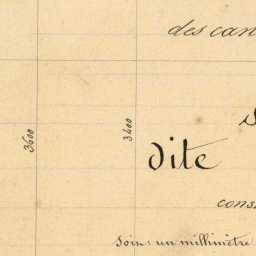 des can
3600
3400
dite
cons
Soin: un millimètre